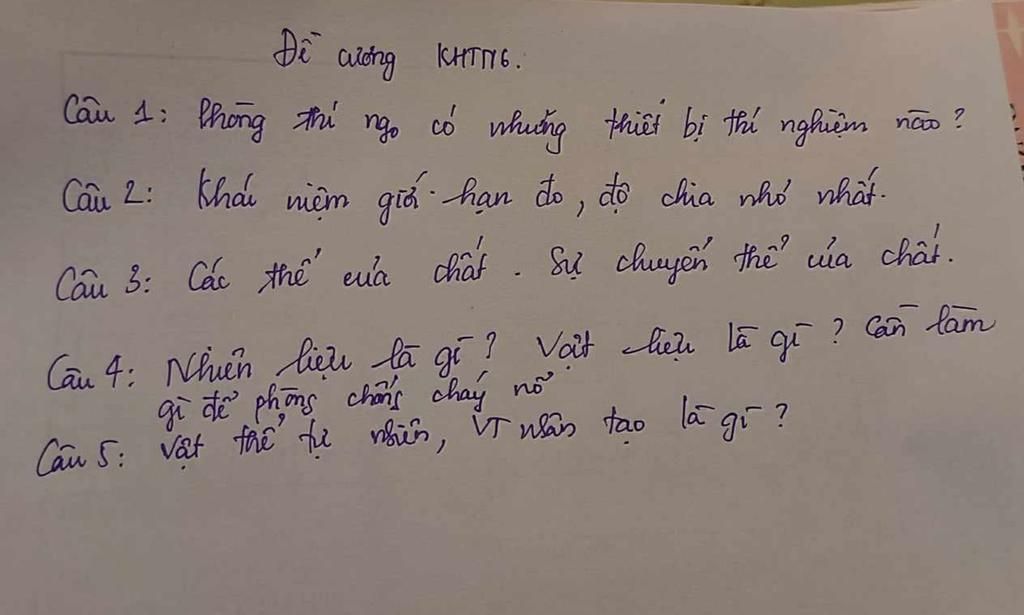 Đề cương KHTN6.
Câu 1: Phòng thí ngo có những thiết bị thí nghiệm nào?
Câu 2: Khái niệm giới hạn đo, độ chia nhỏ nhất.
Câu 3: Các thể của chất. Sự chuyển thể của chất.
Câu 4: Nhiên liệu là gì? Vật liệu là gì? Cần làm
gì để phòng chống cháy nổ
Câu 5: Vật thể tự nhiên, VT nhân tạo là gì?